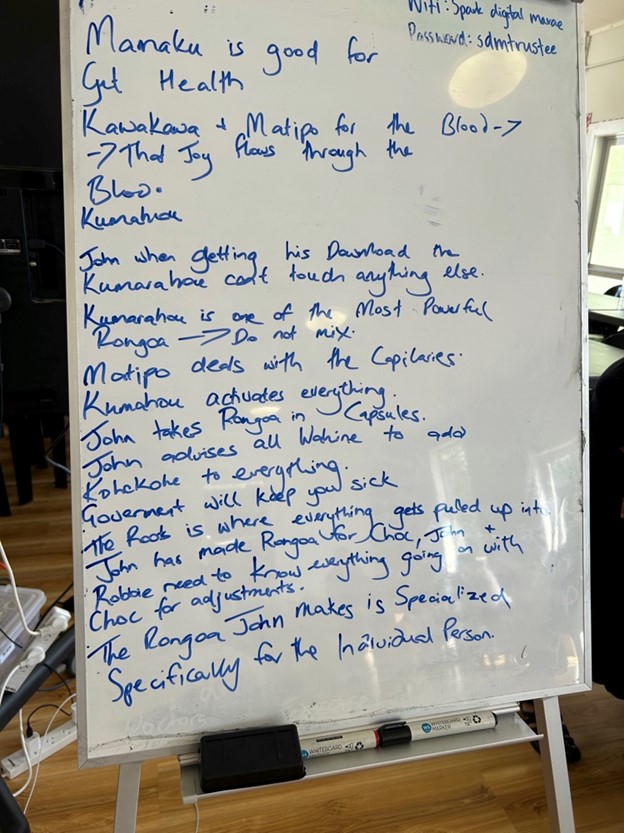 Wifi: Spark digital marae
Password: sdmtrustee
Mamaku is good for
Gut Health
Kawakawa + Matipo for the Blood ->
-> That Joy flows through the
Blood.
Kumarahou
John when getting his Download the
Kumarahou can't touch anything else.
Kumarahou is one of the Most Powerful
Rongoa -> Do not mix.
Matipo deals with the Capilaries.
Kumahou activates everything.
John takes Rongoa in Capsules.
John advises all Wahine to add
Kohekohe to everything.
Goverment will keep you sick
The Roots is where everything gets pulled up into
John has made Rongoa for Choc, John +
Robbie need to know everything going on with
Choc for adjustments.
The Rongoa John makes is Specialized
Specifically for the Individual Person.
WHITEBOARD
WHITEBOARD MARKER